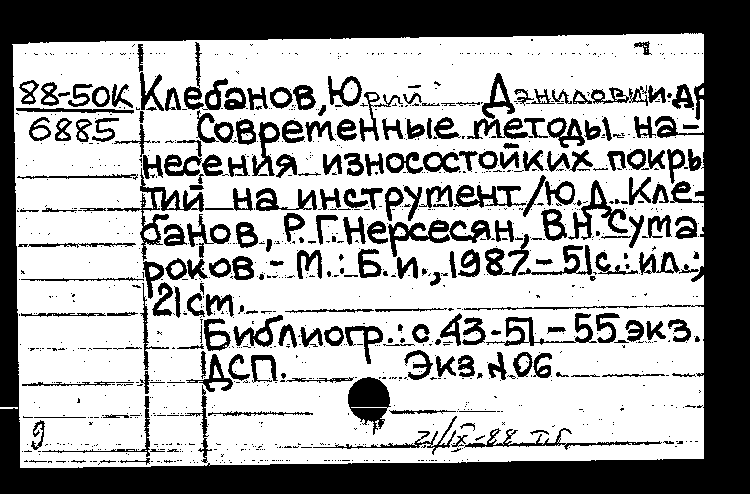 88-50К Клебанов, Юрий Данилович и др
6885 Современные методы на-
несения износостойких покры
тий на инструмент/Ю.Д. Кле-
банов, Р.Г. Нерсесян, В.Н. Сума
роков. - М.: Б.и., 1987. - 51 с.: ил.;
21 см.
Библиогр.: с.43-51. - 55 экз.
ДСП. Экз. №06.
9 21/IX-88